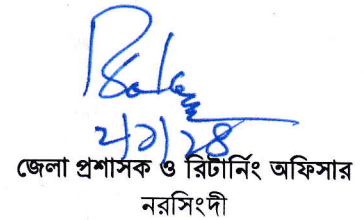 জেলা প্রশাসক ও রিটার্নিং অফিসার
নরসিংদী